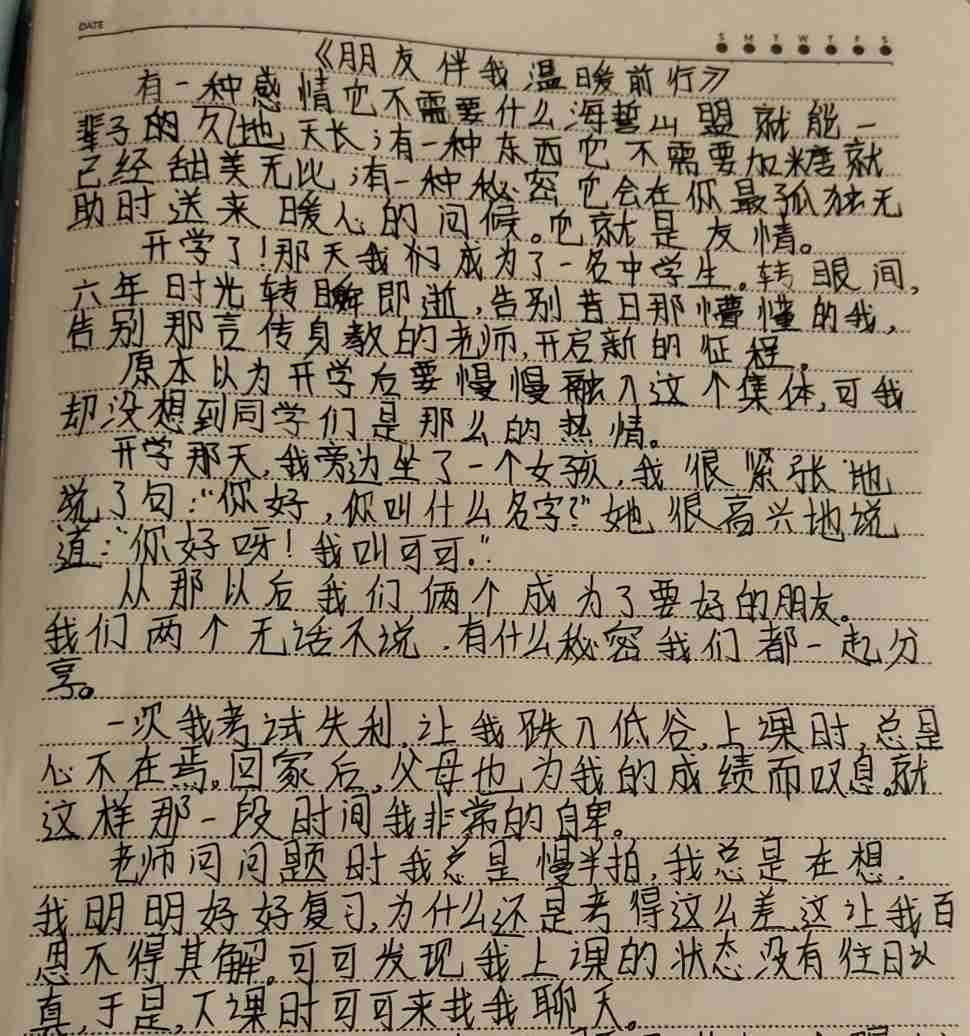 DATE
S M T W T F S
《朋友伴我温暖前行》
有一种感情它不需要什么海誓山盟就能一
辈子的久地天长;有一种东西它不需要加糖就
已经甜美无比;有一种秘密它会在你最孤独无
助时送来暖心的问候。它就是友情。
开学了!那天我们成为了一名中学生。转眼间,
六年时光转瞬即逝,告别昔日那懵懂的我,
告别那言传身教的老师,开启新的征程。
原本以为开学后要慢慢融入这个集体,可我
却没想到同学们是那么的热情。
开学那天,我旁边坐了一个女孩,我很紧张地
说了句:“你好,你叫什么名字?”她很高兴地说
道:“你好呀!我叫可可。”
从那以后我们俩个成为了要好的朋友。
我们两个无话不说.有什么秘密我们都一起分
享。
一次我考试失利,让我跌入低谷,上课时,总是
心不在焉。回家后,父母也为我的成绩而叹息.就
这样那一段时间我非常的自卑。
老师问问题时我总是慢半拍,我总是在想.
我明明好好复习,为什么还是考得这么差.这让我百
思不得其解。可可发现我上课的状态没有往日认
真,于是,下课时可可来找我聊天。